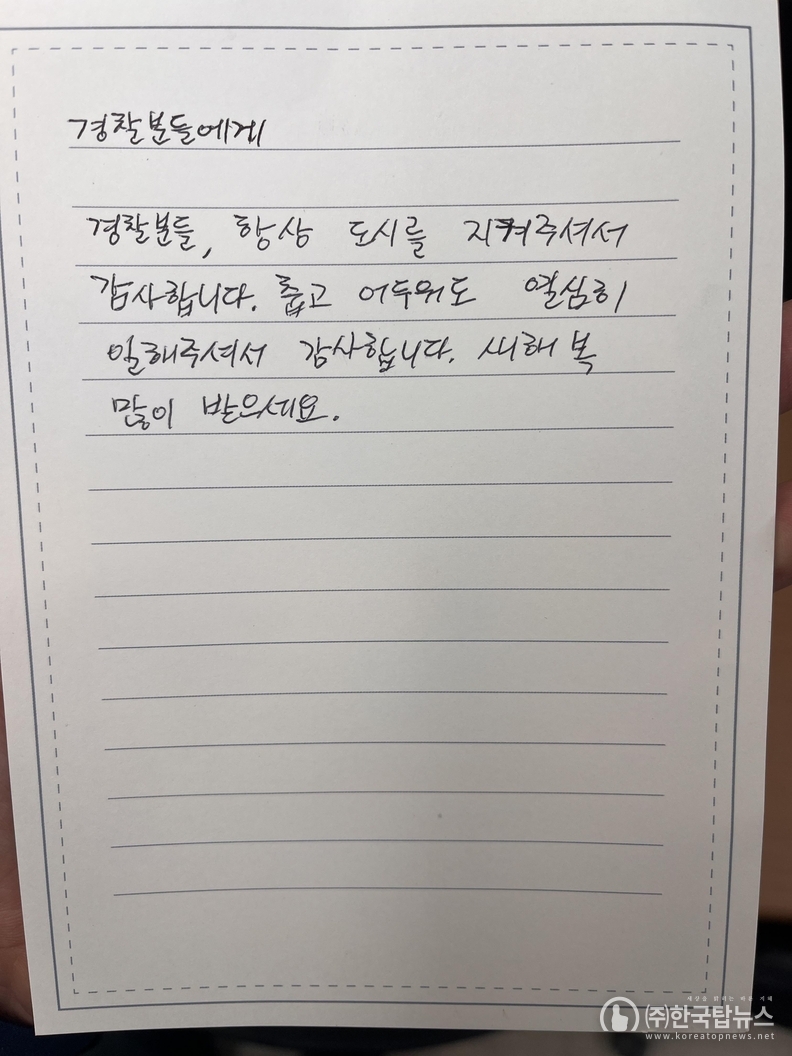 경찰분들에게
경찰분들, 항상 도시를 지켜주셔서
감사합니다. 춥고 어두워도 열심히
일해주셔서 감사합니다. 새해 복
많이 받으세요.
세상을 밝히는 바른 지혜
(주)한국탑뉴스
www.koreatopnews.net